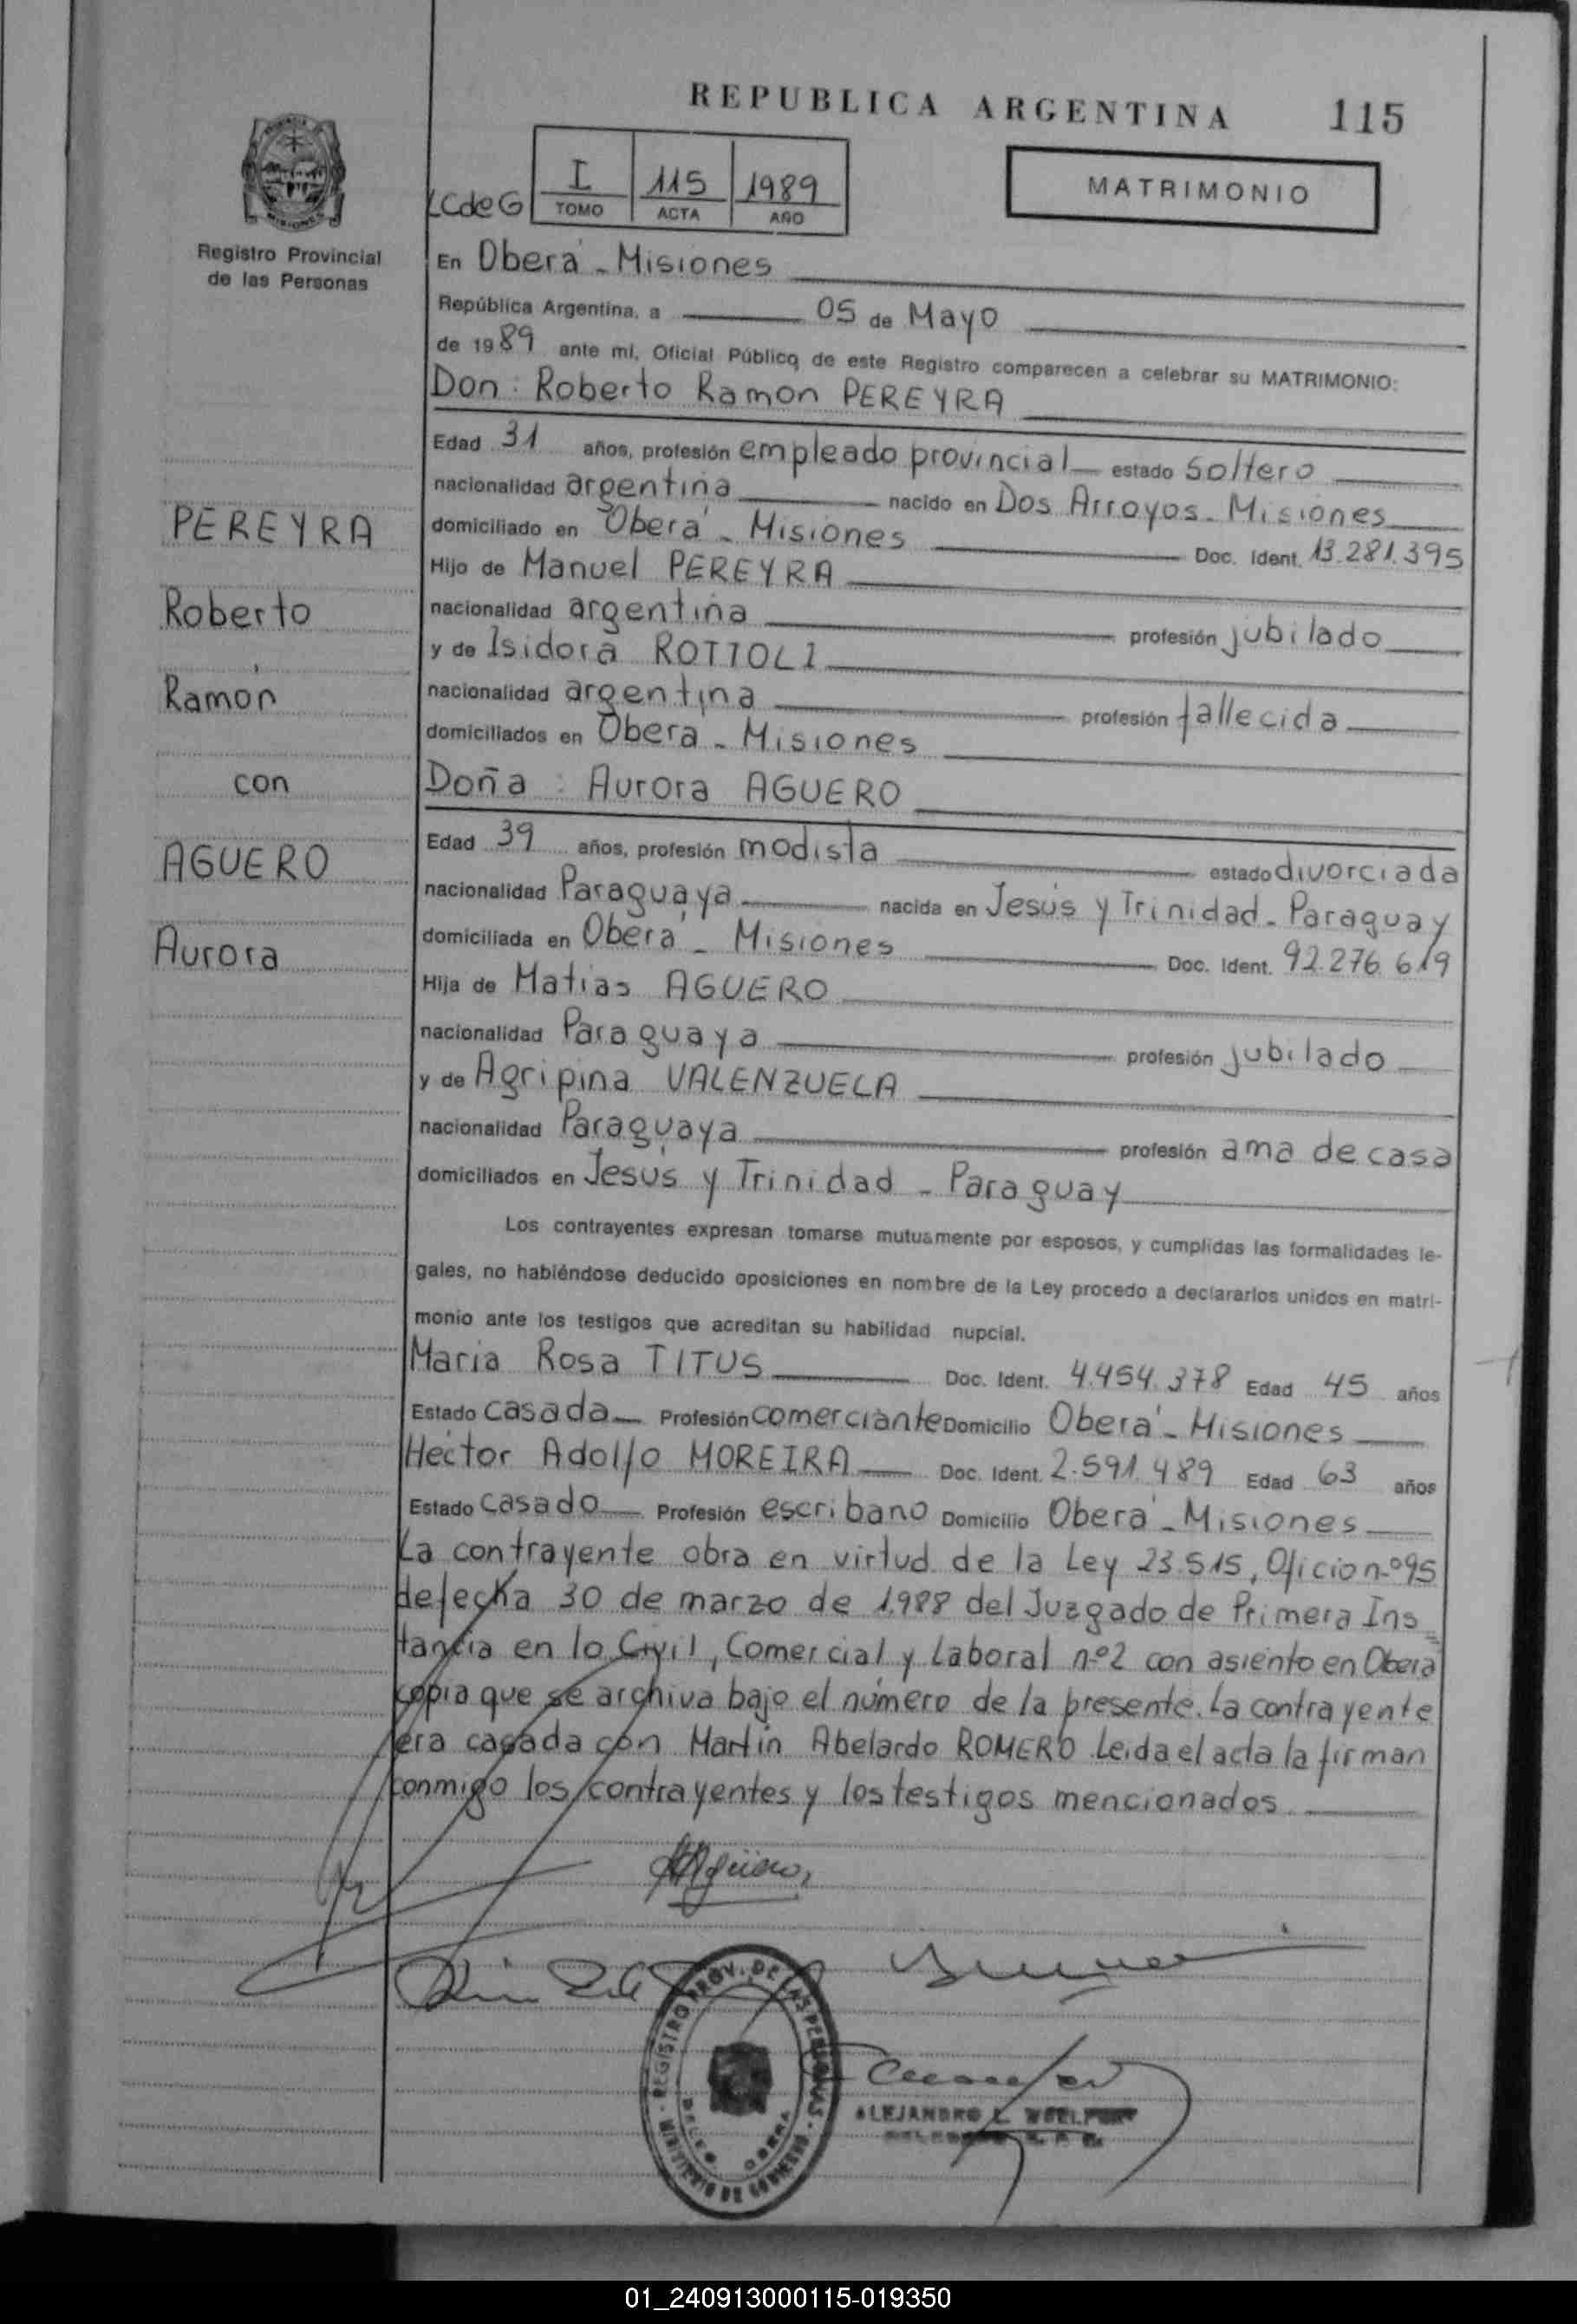 REPUBLICA ARGENTINA 115
LCdeG I 115 1989
TOMO ACTA AÑO
MATRIMONIO
Registro Provincial
de las Personas
En Oberá - Misiones
República Argentina, a 05 de Mayo
de 1989 ante mí, Oficial Público de este Registro comparecen a celebrar su MATRIMONIO:
Don: Roberto Ramon PEREYRA
Edad 31 años, profesión empleado provincial estado soltero
nacionalidad argentina nacido en Dos Arroyos - Misiones
domiciliado en Oberá - Misiones Doc. Ident. 13.281.395
Hijo de Manuel PEREYRA
nacionalidad argentina profesión jubilado
y de Isidora ROTTOLI
nacionalidad argentina profesión fallecida
domiciliados en Oberá - Misiones
Doña: Aurora AGUERO
Edad 39 años, profesión modista estado divorciada
nacionalidad Paraguaya nacida en Jesús y Trinidad - Paraguay
domiciliada en Oberá - Misiones Doc. Ident. 92.276.619
Hija de Matias AGUERO
nacionalidad Paraguaya profesión jubilado
y de Agripina VALENZUELA
nacionalidad Paraguaya profesión ama de casa
domiciliados en Jesús y Trinidad - Paraguay
Los contrayentes expresan tomarse mutuamente por esposos, y cumplidas las formalidades le-
gales, no habiéndose deducido oposiciones en nombre de la Ley procedo a declararlos unidos en matri-
monio ante los testigos que acreditan su habilidad nupcial.
Maria Rosa TITUS Doc. Ident. 4.454.378 Edad 45 años
Estado casada Profesión comerciante Domicilio Oberá - Misiones
Hector Adolfo MOREIRA Doc. Ident. 2.591.489 Edad 63 años
Estado casado Profesión escribano Domicilio Oberá - Misiones
La contrayente obra en virtud de la Ley 23.515, Oficio n.º 95
de fecha 30 de marzo de 1.988 del Juzgado de Primera Ins
tancia en lo Civil, Comercial y Laboral n.º 2 con asiento en Oberá
copia que se archiva bajo el número de la presente. La contrayente
era casada con Martín Abelardo ROMERO. Leida el acta la firman
conmigo los contrayentes y los testigos mencionados.
PEREYRA
Roberto
Ramón
con
AGUERO
Aurora
REGISTRO PROV. DE LAS PERSONAS
MINISTERIO DE GOBIERNO
ALEJANDRO
01_240913000115-019350